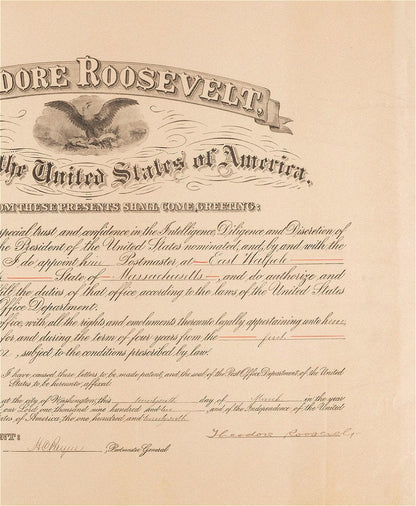 DORE ROOSEVELT,
the United States of America.
OM THESE PRESENTS SHALL COME, GREETING:
special trust and confidence in the Intelligence, Diligence and Discretion of
he President of the United States nominated, and, by and with the
I do appoint her Postmaster at East Walpole
State of Massachusetts, and do authorize and
ill the duties of that office, according to the laws of the United States
Office Department.
office, with all the rights and emoluments thereunto legally appertaining unto her,
for and during the term of four years from the
, subject to the conditions prescribed by law.
I have caused these letters to be made patent, and the seal of the Post Office Department of the United
States to be hereunto affixed.
at the city of Washington, this day of in the year
our Lord one thousand nine hundred and two, and of the Independence of the United
tates of America, the one hundred and
Theodore Roosevelt
NT:
H C Payne, Postmaster General